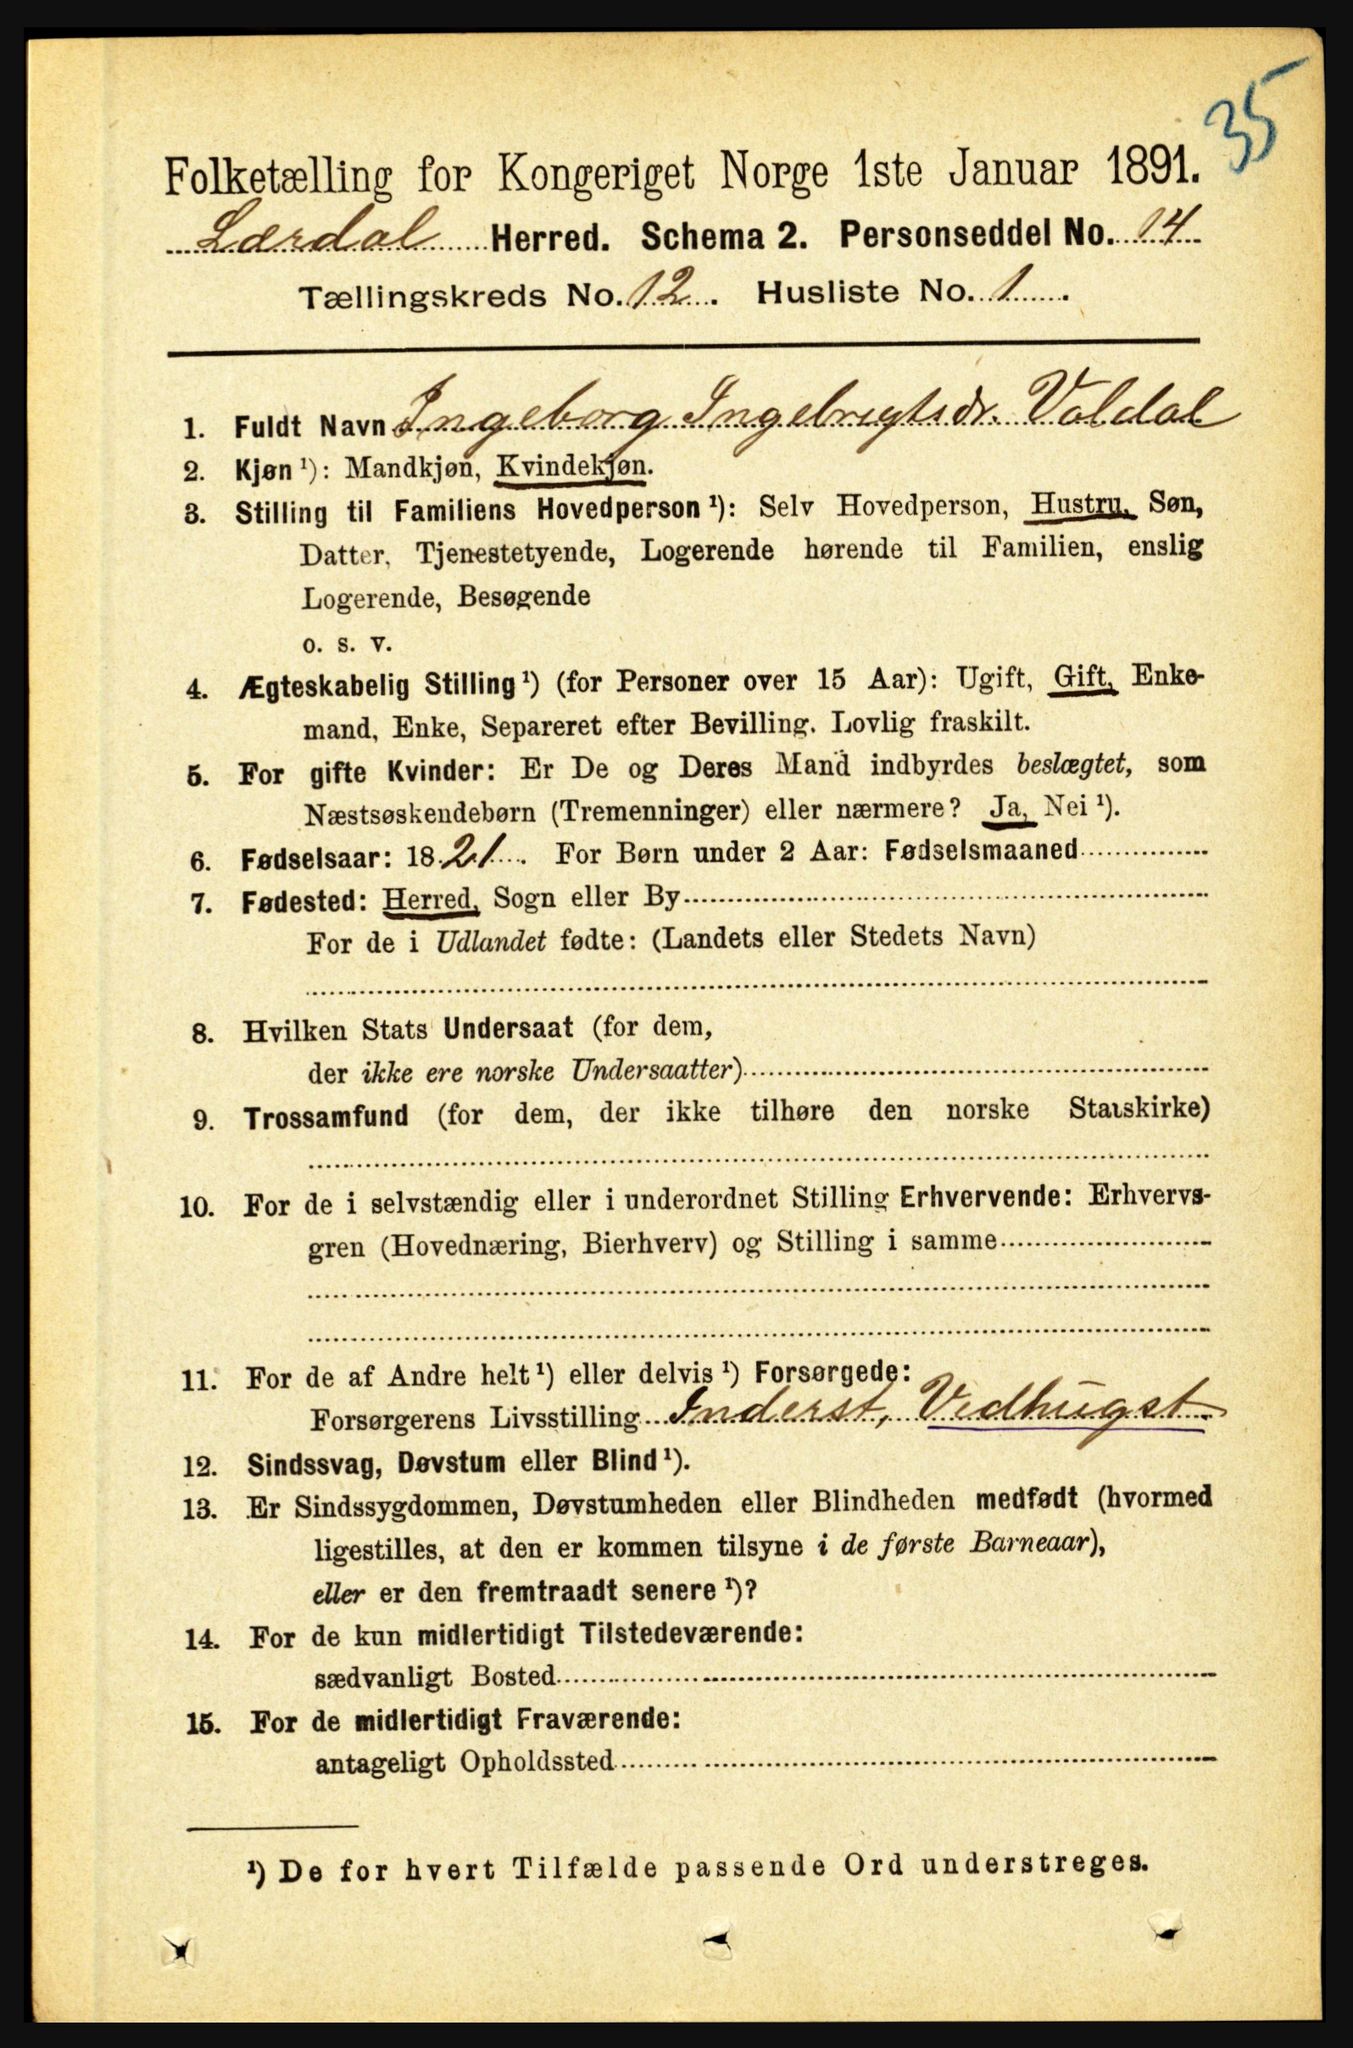 35
Folketælling for Kongeriget Norge 1ste Januar 1891.
Lærdal Herred. Schema 2. Personseddel No. 14
Tællingskreds No. 12. Husliste No. 1.
1. Fuldt Navn Ingeborg Ingebrigtsdr. Voldal
2. Kjøn ¹): Mandkjøn, Kvindekjøn.
3. Stilling til Familiens Hovedperson ¹): Selv Hovedperson, Hustru, Søn,
Datter, Tjenestetyende, Logerende hørende til Familien, enslig
Logerende, Besøgende
o. s. v.
4. Ægteskabelig Stilling ¹) (for Personer over 15 Aar): Ugift, Gift, Enke-
mand, Enke, Separeret efter Bevilling. Lovlig fraskilt.
5. For gifte Kvinder: Er De og Deres Mand indbyrdes beslægtet, som
Næstsøskendebørn (Tremenninger) eller nærmere? Ja, Nei ¹).
6. Fødselsaar: 1821. For Børn under 2 Aar: Fødselsmaaned
7. Fødested: Herred, Sogn eller By
For de i Udlandet fødte: (Landets eller Stedets Navn)
8. Hvilken Stats Undersaat (for dem,
der ikke ere norske Undersaatter)
9. Trossamfund (for dem, der ikke tilhøre den norske Statskirke)
10. For de i selvstændig eller i underordnet Stilling Erhvervende: Erhvervs-
gren (Hovednæring, Bierhverv) og Stilling i samme
11. For de af Andre helt ¹) eller delvis ¹) Forsørgede:
Forsørgerens Livsstilling Inderst, Vedhugst
12. Sindssvag, Døvstum eller Blind ¹).
13. Er Sindssygdommen, Døvstumheden eller Blindheden medfødt (hvormed
ligestilles, at den er kommen tilsyne i de første Barneaar),
eller er den fremtraadt senere ¹)?
14. For de kun midlertidigt Tilstedeværende:
sædvanligt Bosted
15. For de midlertidigt Fraværende:
antageligt Opholdssted
¹) De for hvert Tilfælde passende Ord understreges.